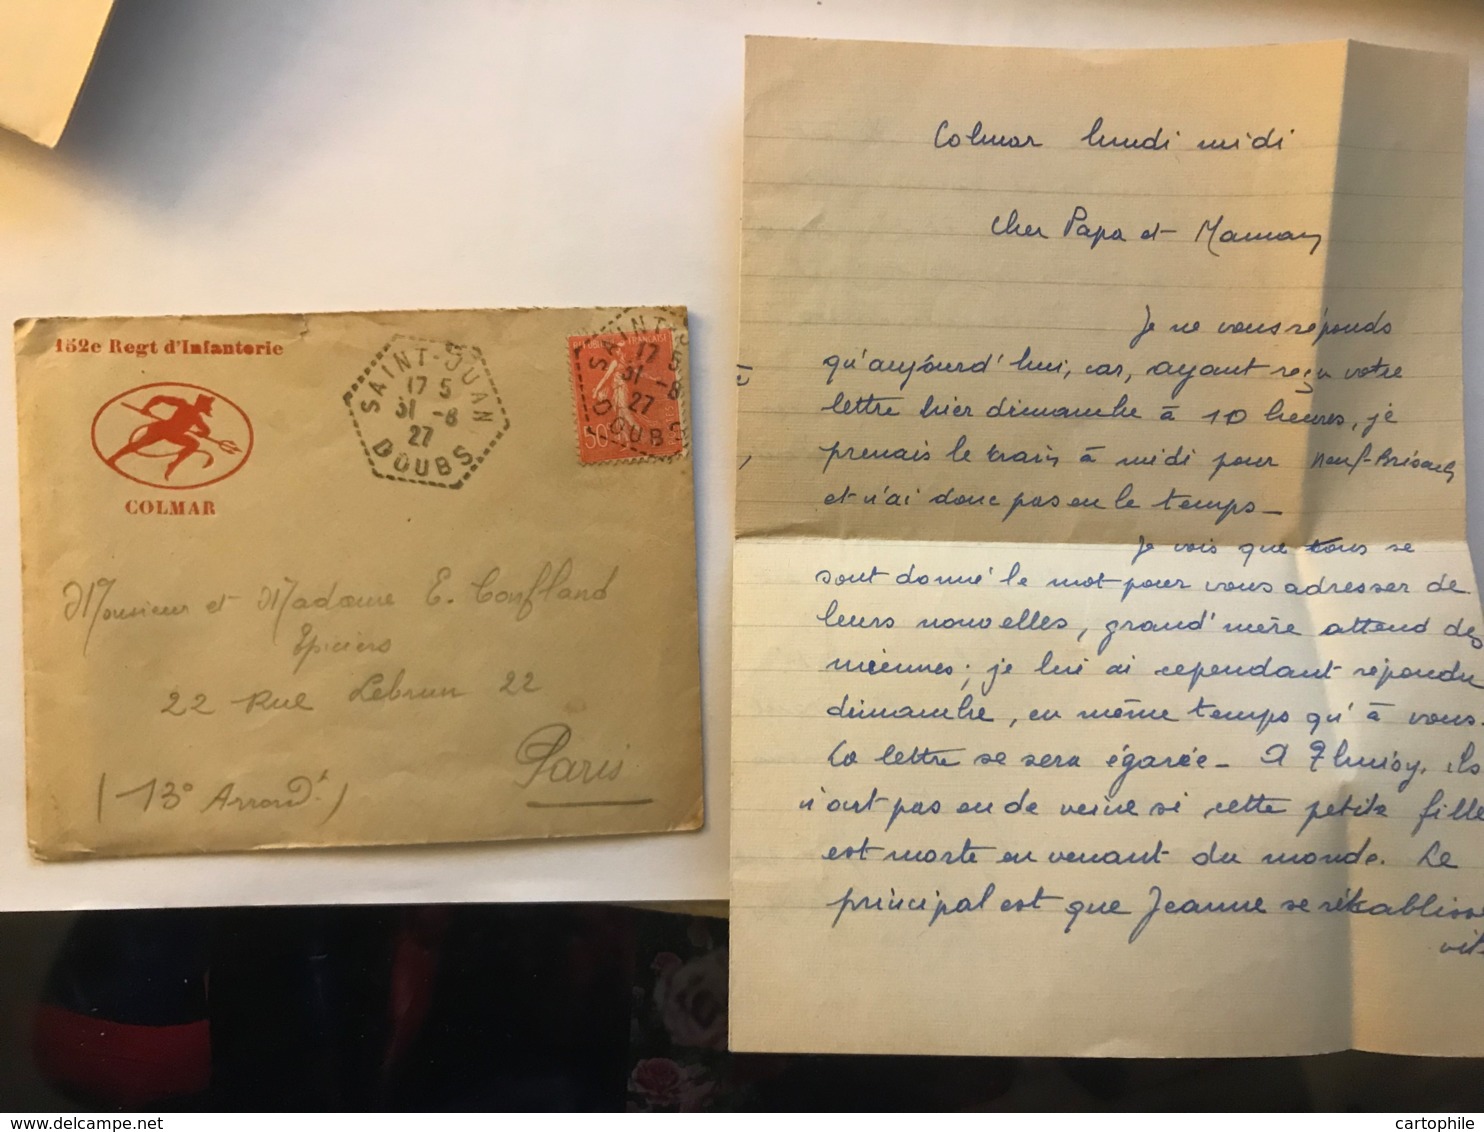 152e Regt d'Infanterie
COLMAR
SAINT-JUAN
17 5
31 -8
27
DOUBS
FRANÇAISE
50
SAINT-J
17 5
31 -8
27
DOUBS
Monsieur et Madame E. Confland
Epiciers
22 Rue Lebrun 22
Paris
(13° Arrondt)
Colmar lundi midi
Cher Papa et Maman
Je ne vous réponds
qu'aujourd'hui, car, ayant reçu votre
lettre hier dimanche à 10 heures, je
prenais le train à midi pour Neuf-Brisach
et n'ai donc pas eu le temps _
Je vois que tous se
sont donné le mot pour vous adresser de
leurs nouvelles, grand'mère attend des
miennes; je lui ai cependant répondu
dimanche, en même temps qu'à vous.
La lettre se sera égarée _ A Thuisy, ils
n'ont pas eu de veine si cette petite fille
est morte en venant du monde. Le
principal est que Jeanne se rétablisse
vite
cartophile.com